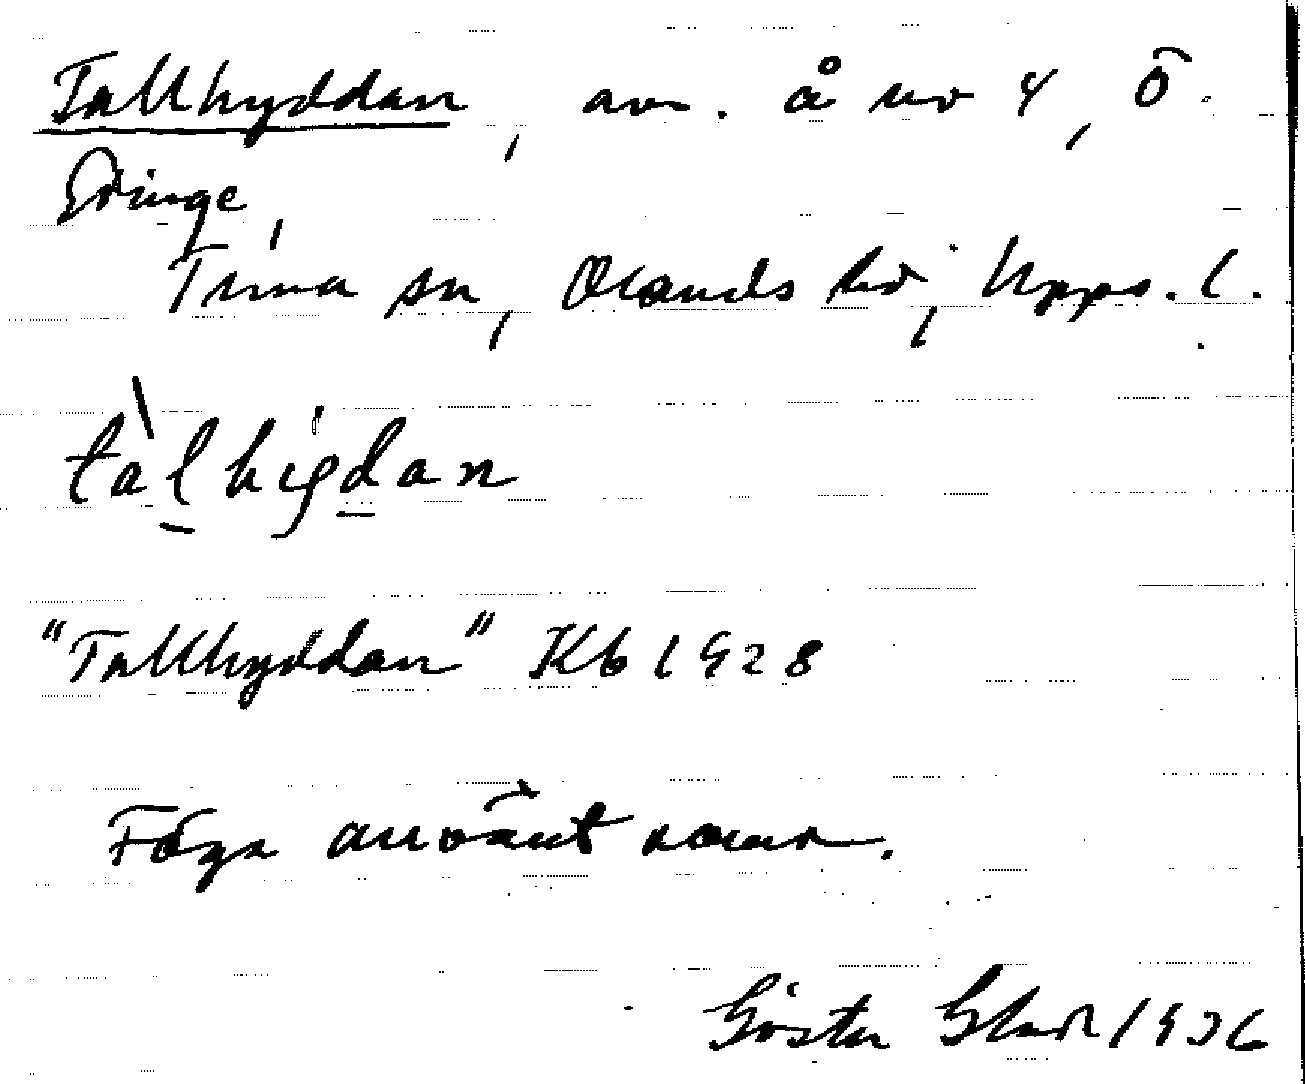 Tallhyddan, avs. å nr 4, Ö.
Edinge,
Tuna sn, Olands hd, Upps. l.
tàlhiddan
"Tallhyddan" Kb 1928
Föga använt namn.
Gösta 1936